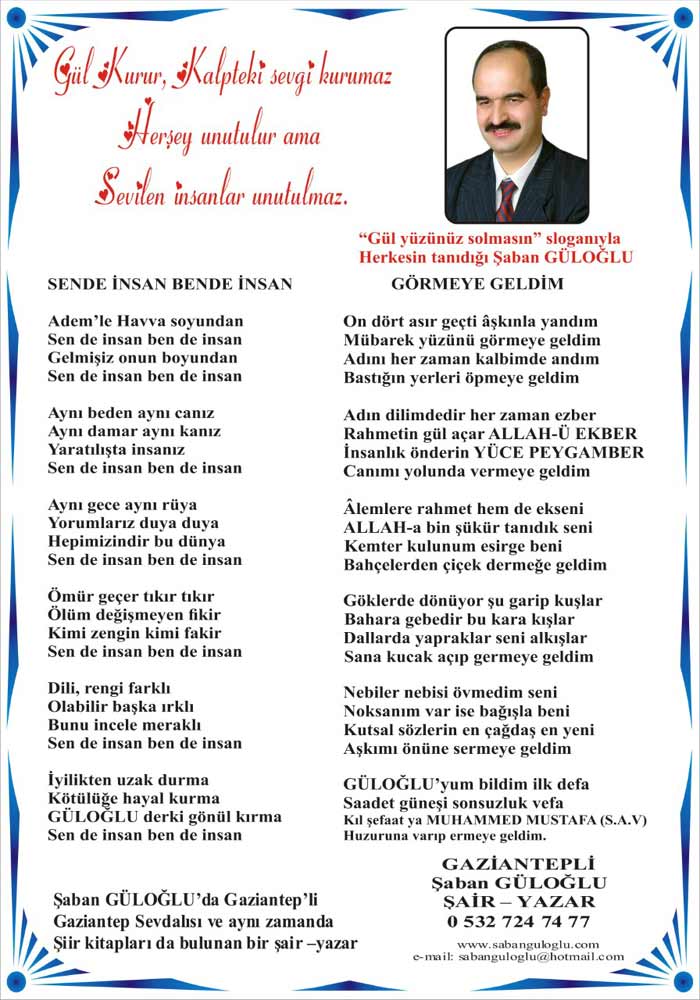 Gül Kurur, Kalpteki sevgi kurumaz
Herşey unutulur ama
Sevilen insanlar unutulmaz.
“Gül yüzünüz solmasın” sloganıyla
Herkesin tanıdığı Şaban GÜLOĞLU
SENDE İNSAN BENDE İNSAN
Adem’le Havva soyundan
Sen de insan ben de insan
Gelmişiz onun boyundan
Sen de insan ben de insan
Aynı beden aynı canız
Aynı damar aynı kanız
Yaratılışta insanız
Sen de insan ben de insan
Aynı gece aynı rüya
Yorumlarız duya duya
Hepimizindir bu dünya
Sen de insan ben de insan
Ömür geçer tıkır tıkır
Ölüm değişmeyen fikir
Kimi zengin kimi fakir
Sen de insan ben de insan
Dili, rengi farklı
Olabilir başka ırklı
Bunu incele meraklı
Sen de insan ben de insan
İyilikten uzak durma
Kötülüğe hayal kurma
GÜLOĞLU derki gönül kırma
Sen de insan ben de insan
GÖRMEYE GELDİM
On dört asır geçti âşkınla yandım
Mübarek yüzünü görmeye geldim
Adını her zaman kalbimde andım
Bastığın yerleri öpmeye geldim
Adın dilimdedir her zaman ezber
Rahmetin gül açar ALLAH-Ü EKBER
İnsanlık önderin YÜCE PEYGAMBER
Canımı yolunda vermeye geldim
Âlemlere rahmet hem de ekseni
ALLAH-a bin şükür tanıdık seni
Kemter kulunum esirge beni
Bahçelerden çiçek dermeğe geldim
Göklerde dönüyor şu garip kuşlar
Bahara gebedir bu kara kışlar
Dallarda yapraklar seni alkışlar
Sana kucak açıp germeye geldim
Nebiler nebisi övmedim seni
Noksanım var ise bağışla beni
Kutsal sözlerin en çağdaş en yeni
Aşkımı önüne sermeye geldim
GÜLOĞLU’yum bildim ilk defa
Saadet güneşi sonsuzluk vefa
Kıl şefaat ya MUHAMMED MUSTAFA (S.A.V)
Huzuruna varıp ermeye geldim.
Şaban GÜLOĞLU’da Gaziantep’li
Gaziantep Sevdalısı ve aynı zamanda
Şiir kitapları da bulunan bir şair –yazar
GAZİANTEPLİ
Şaban GÜLOĞLU
ŞAİR – YAZAR
0 532 724 74 77
www.sabanguloglu.com
e-mail: sabanguloglu@hotmail.com